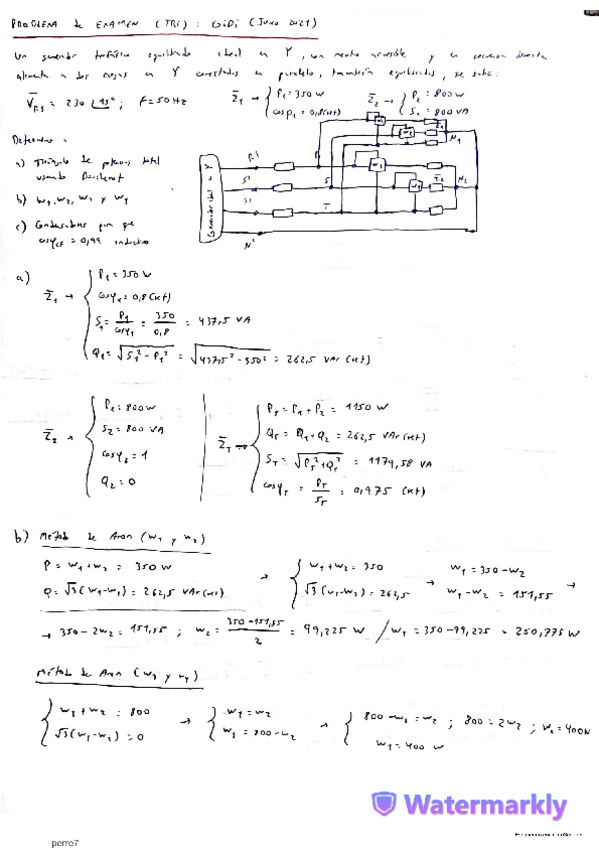 PROBLEMA de EXAMEN (TRI) : GIDI (Junio 2021)
Un generador trifásico equilibrado ideal en Y, con neutro accesible y en secuencia directa
alimenta a dos cargas en Y conectadas en paralelo, también equilibradas, se sabe:
V̅RS = 230 |15° ; f = 50 Hz
Z̅1 → { P1 = 350 W
cosφ1 = 0,8 (ind)
Z̅2 → { P2 = 800 W
S2 = 800 VA
Determinar:
a) Triángulo de potencias total
usando Boucherot
b) W1, W2, W3 y W4
c) Condensadores para que
cosφCF = 0,99 inductivo
Generador ideal Y
R'
S'
S
T
N'
N1
N2
Z̅2
a)
Z̅1 →
P1 = 350 W
cosφ1 = 0,8 (ind)
S1 = P1/cosφ1 = 350/0,8 = 437,5 VA
Q1 = √(S1² - P1²) = √(437,5² - 350²) = 262,5 VAr (ind)
Z̅2 →
P2 = 800 W
S2 = 800 VA
cosφ2 = 1
Q2 = 0
Z̅T →
PT = P1 + P2 = 1150 W
QT = Q1 + Q2 = 262,5 VAr (ind)
ST = √(PT² + QT²) = 1179,58 VA
cosφT = PT/ST = 0,975 (ind)
b) Método de Aron (W1 y W2)
P = W1 + W2 = 350 W
Q = √3 (W1 - W2) = 262,5 VAr (ind)
→ { W1 + W2 = 350
√3 (W1 - W2) = 262,5
→ W1 = 350 - W2
W1 - W2 = 151,55 →
→ 350 - 2W2 = 151,55 ; W2 = (350 - 151,55)/2 = 99,225 W / W1 = 350 - 99,225 = 250,775 W
Método de Aron (W3 y W4)
W1 + W2 = 800
√3 (W1 - W2) = 0
→ { W1 = W2
W1 = 800 - W2
→ { 800 - W2 = W2 ; 800 = 2W2 ; W2 = 400W
W1 = 400 W
Watermarkly
perre7